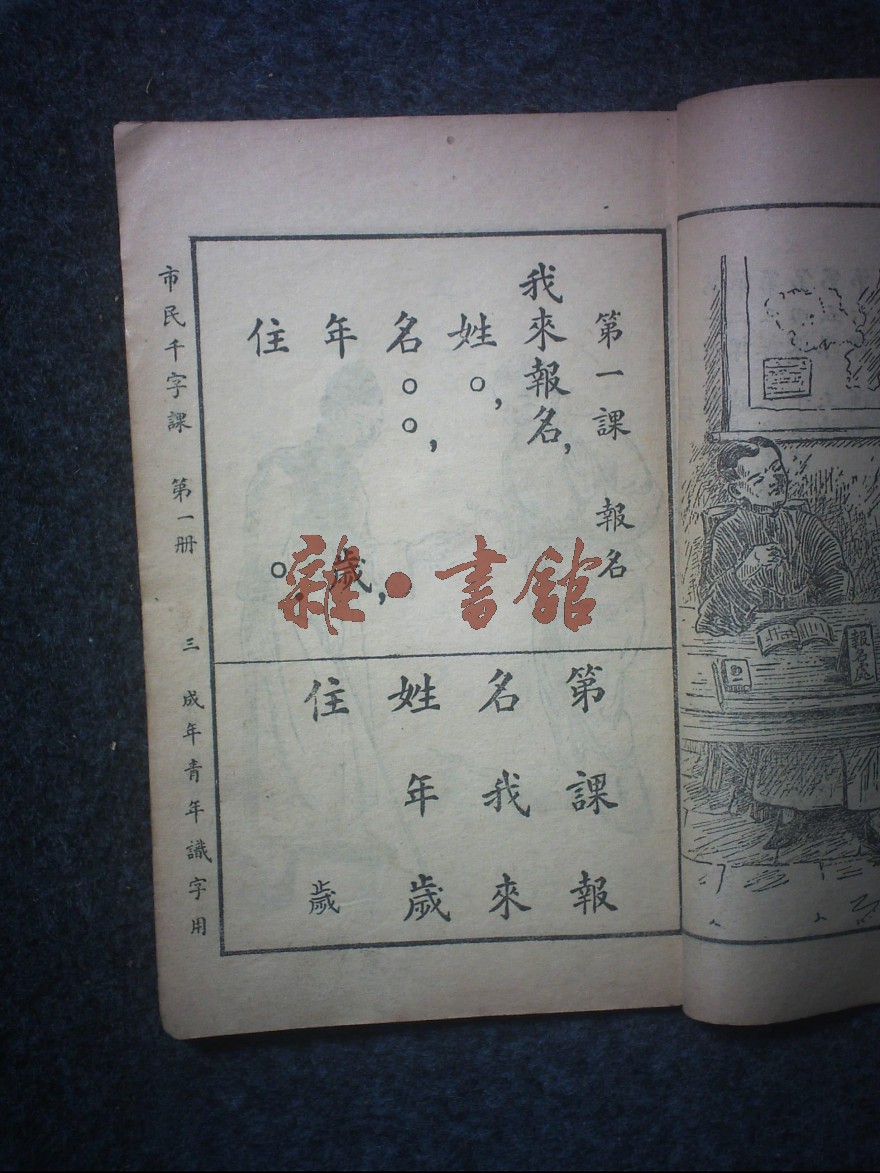 第一課 報名
我來報名，
姓○，
名○○，
年 歲，
住 ○。
第 課 報
名 我 來
姓 年 歲
住 歲
市民千字課 第一冊 三 成年青年識字用
報名處
雜·書館